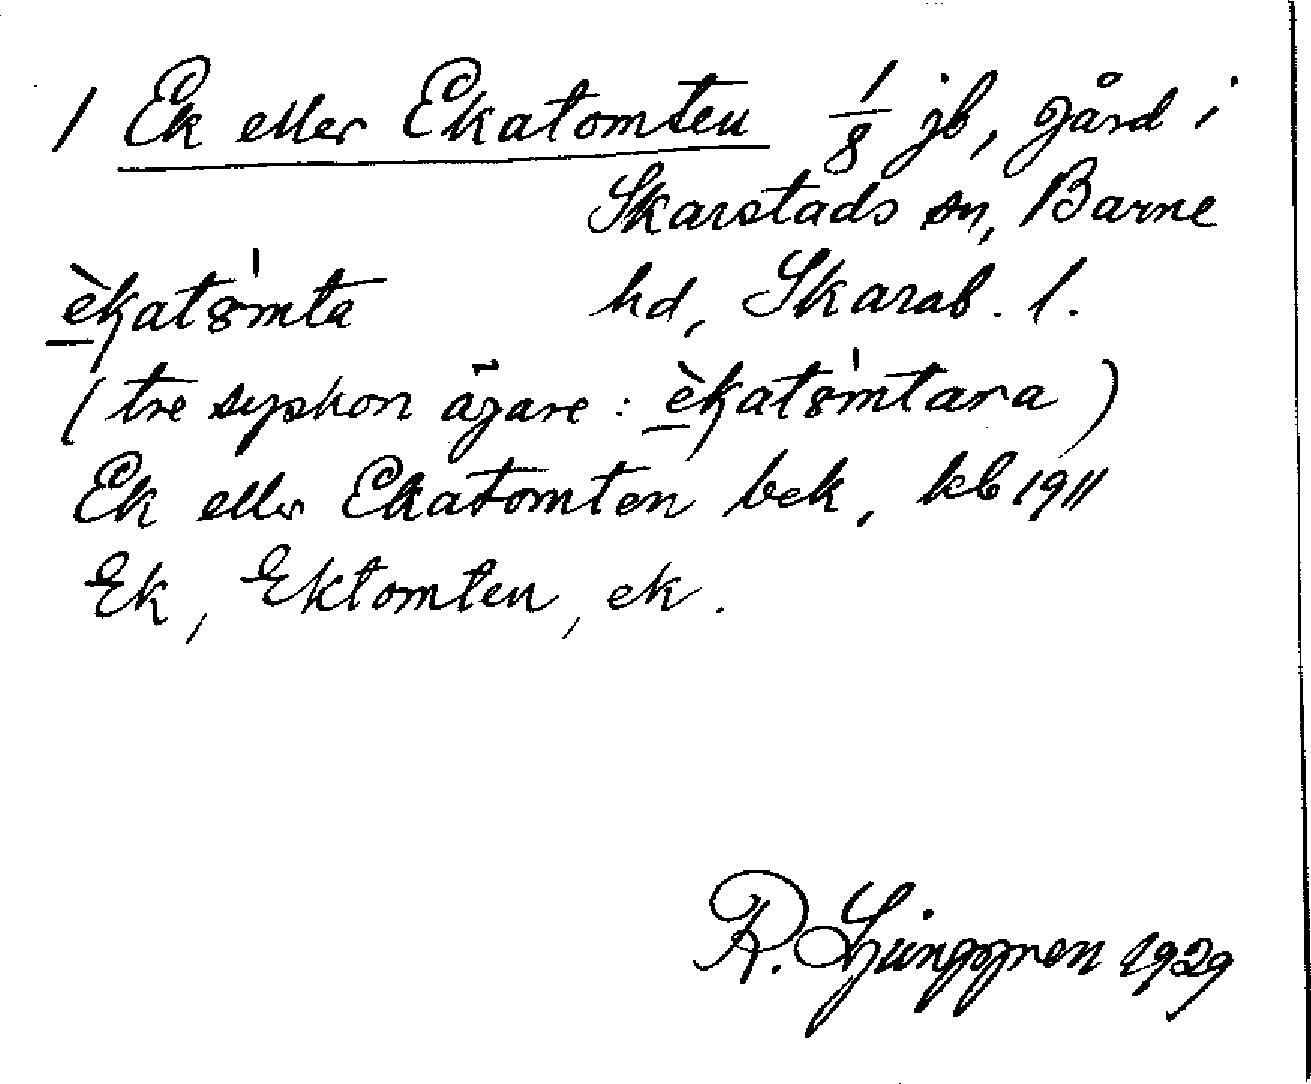 1 Ek eller Ekatomten 1/8 jb, gård i
Skarstads sn, Barne
èkat8mta hd, Skarab. l.
(tre syskon ägare: èkat8mtara)
Ek eller Ekatomten bek, kb 1911
Ek, Ektomten, ek.
R. Ljunggren 1929